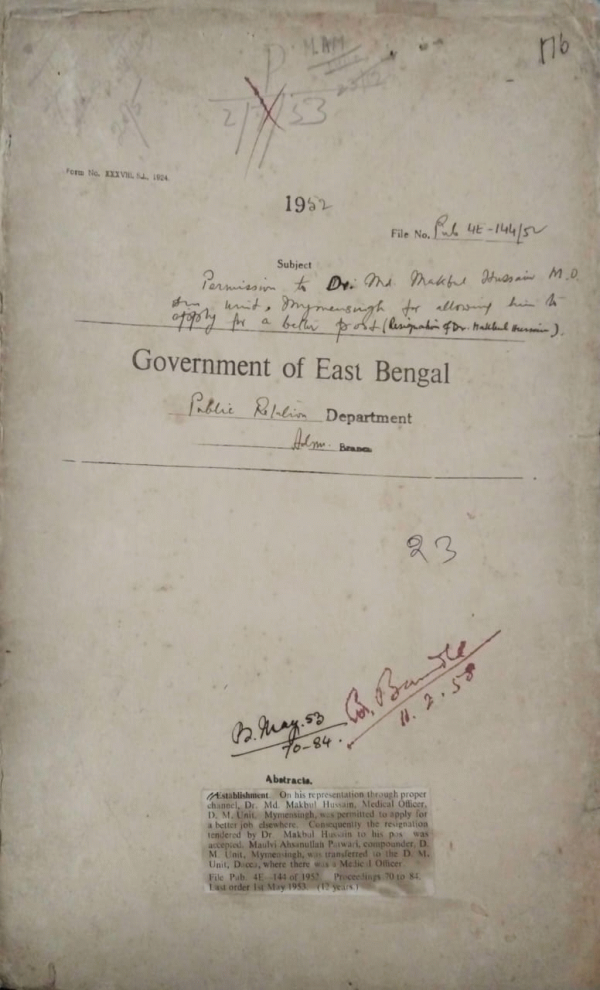 176
P
53
Form No. XXXVIII,
1952
File No. Pub 4E-144/52
Subject
Permission to Dr. Md. Makbul Hussain M.O
Unit, Mymensingh for allowing him to
apply for a better post (Resignation of Dr. Makbul Hussain).
Government of East Bengal
Public Relation Department
Adm. Branch
23
B. May. 53
70-84.
B. Bundle
11. 2. 58
Abstracts.
Establishment. On his representation through proper
channel, Dr. Md. Makbul Hussain, Medical Officer,
D. M. Unit, Mymensingh, was permitted to apply for
a better job elsewhere. Consequently the resignation
tendered by Dr Makbul Hussain to his pos was
accepted. Maulvi Ahsanullah Patwari, compounder, D.
M. Unit, Mymensingh, was transferred to the D. M.
Unit, Dacca, where there was a Medical Officer.
File Pub. 4E—144 of 1952. Proceedings 70 to 84.
Last order 1st May 1953. (12 years.)